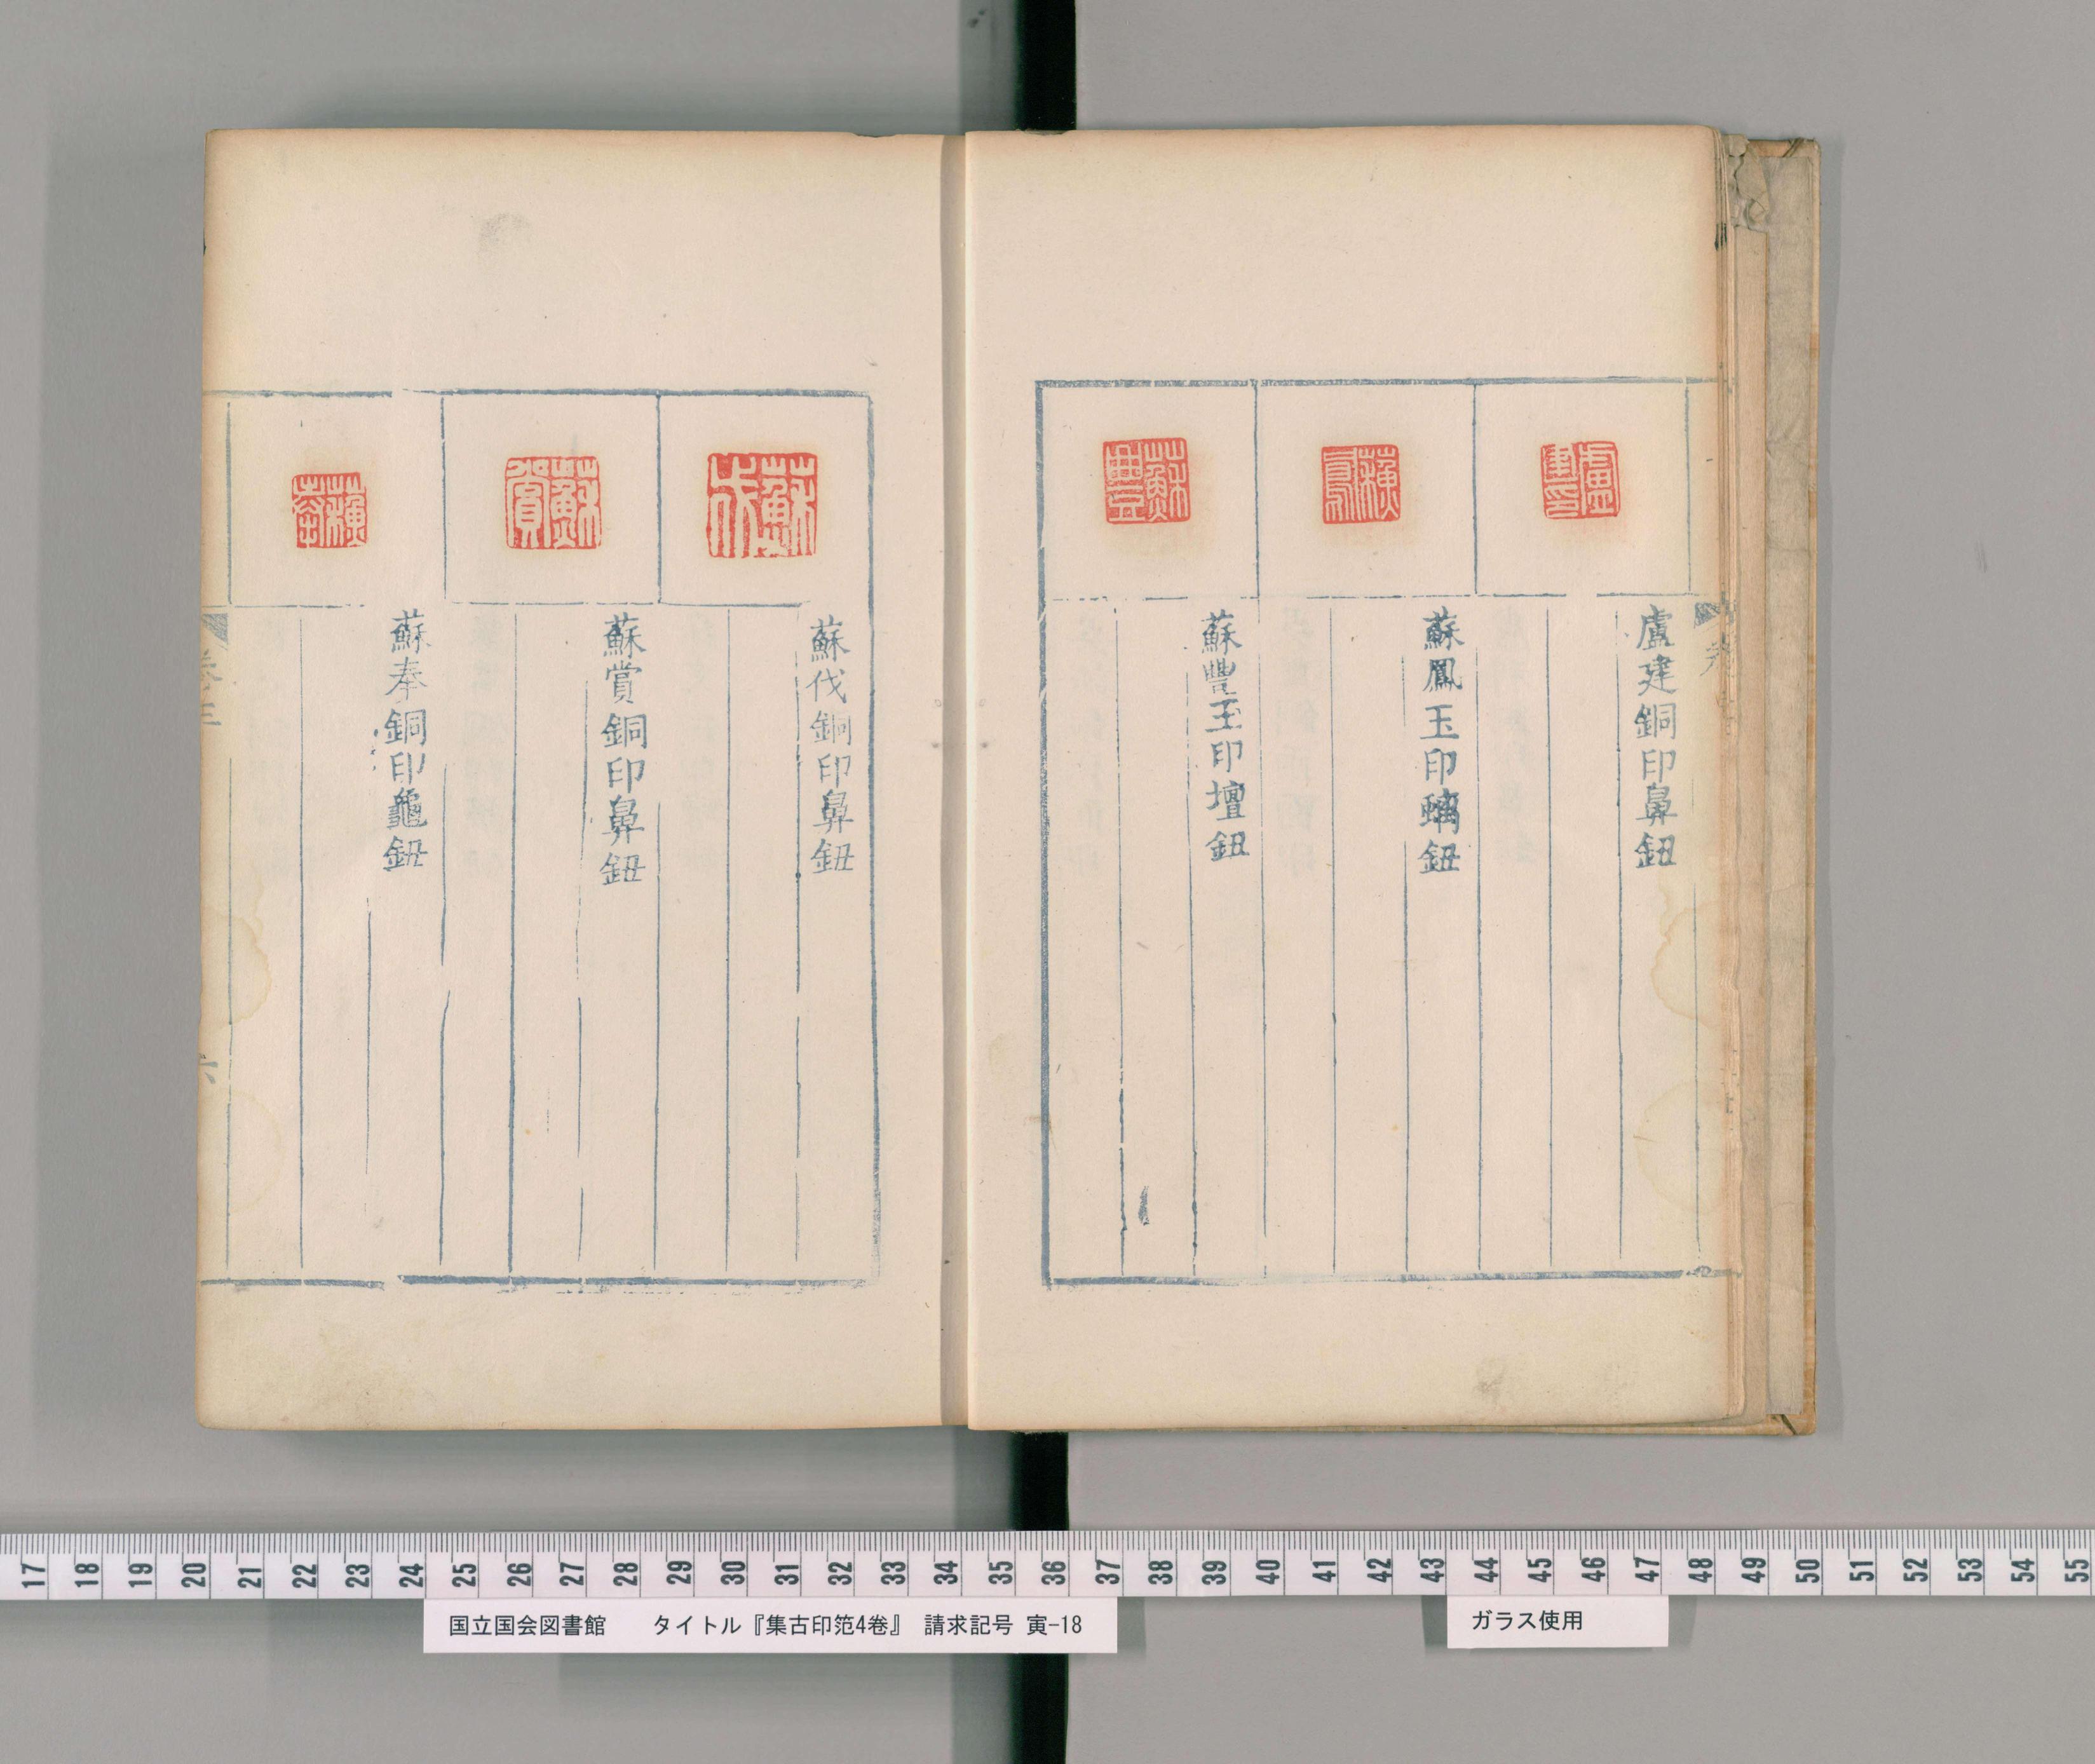 盧建銅印鼻鈕
蘇鳳玉印螭鈕
蘇豐玉印壇鈕
蘇伐銅印鼻鈕
蘇賞銅印鼻鈕
蘇奉銅印龜鈕
卷三
六
盧建印
蘇鳳
蘇豐
蘇伐
蘇賞
蘇奉
17 18 19 20 21 22 23 24 25 26 27 28 29 30 31 32 33 34 35 36 37 38 39 40 41 42 43 44 45 46 47 48 49 50 51 52 53 54 55
国立国会図書館 タイトル『集古印笵4巻』 請求記号 寅-18
ガラス使用